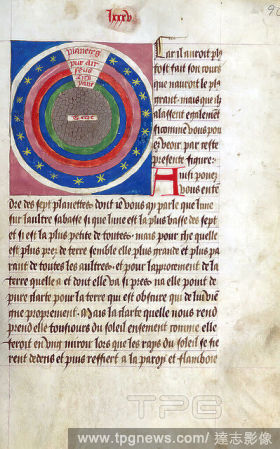 lxxxv
planetes
pur air
feus
pane
terre
Car il auroit pl9
tost fait son cours
que nauroit le pl9
grant. mais que ilz
alassent egalement
si comme vous pou
es veoir par ceste
presente figure:
Ainsi pouez
vous ente
dre des sept planettes. dont ie vous ay parle que lune
sur laultre sabaisse si que lune est la plus basse des sept
et si est la plus petite de toutes. mais pour che quelle
est plus prez de terre semble elle plus grande et plus pa
rant de toutes les aultres. et pour lapprocement de la
terre quelle a et dont elle va si pres: na elle point de
pure clarte pour la terre qui est obscure qui de
me proprement. Mais la clarte quelle nous rend
prend elle tousiours du soleil ensement comme elle
feroit en vng miroir lors que les raps du soleil se fie
rent dedens et puis reffiert a la paroy et flamboie
TPG
www.tpgnews.com/ 達志影像